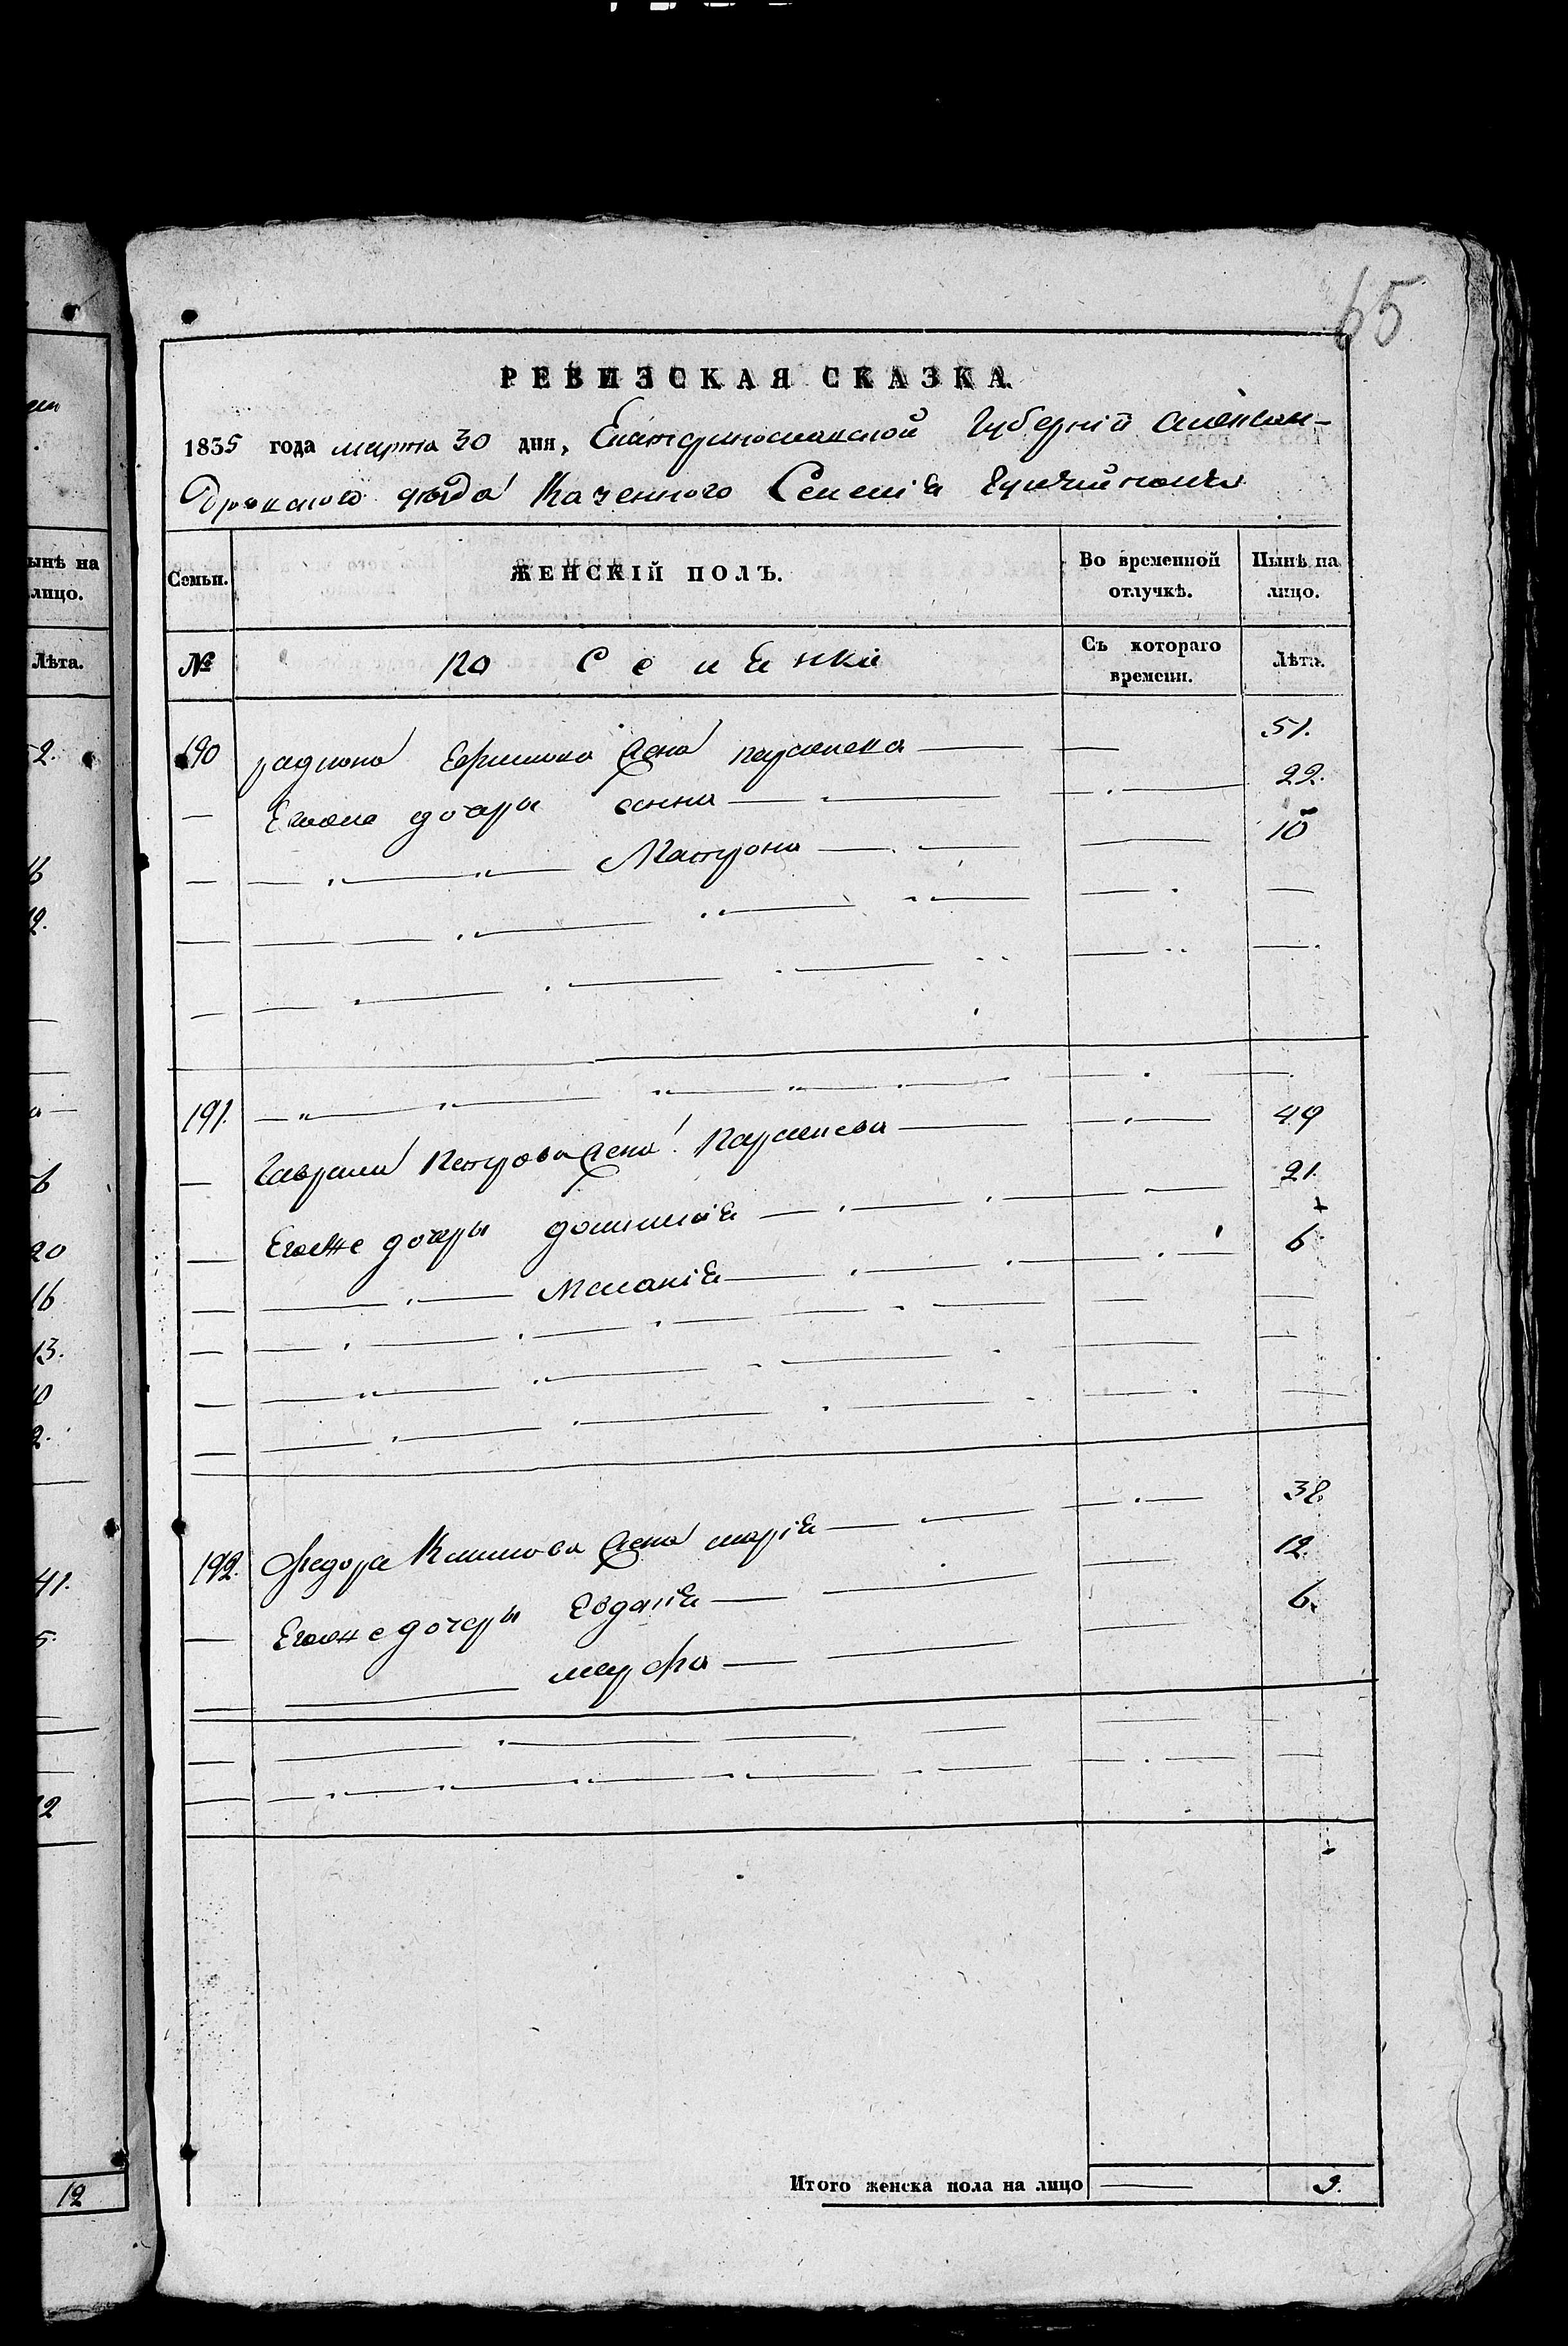 65
РЕВИЗСКАЯ СКАЗКА.
1835 года марта 30 дня, Екатеринославской Губерніи Алексан-
дровскаго уезда Казенного Селенія
Семьи. ЖЕНСКІЙ ПОЛЪ. Во временной отлучкѣ. Нынѣ на лицо.
№ Съ котораго времени. Лѣта.
190 радиона Ефимова жена параскева 51.
Егоже дочери анна 22.
Матрона 10
191.
Гаврила Петрова жена Параскева 49
Егоже дочеры домникія 21.
Меланія 6
192. Федора Климова жена марія 38
Егоже дочеры Евдокія 12.
марфа 6.
Итого женска пола на лицо 9.
ынѣ на
лицо.
Лѣта.
2.
20
16
13.
41.
5.
12